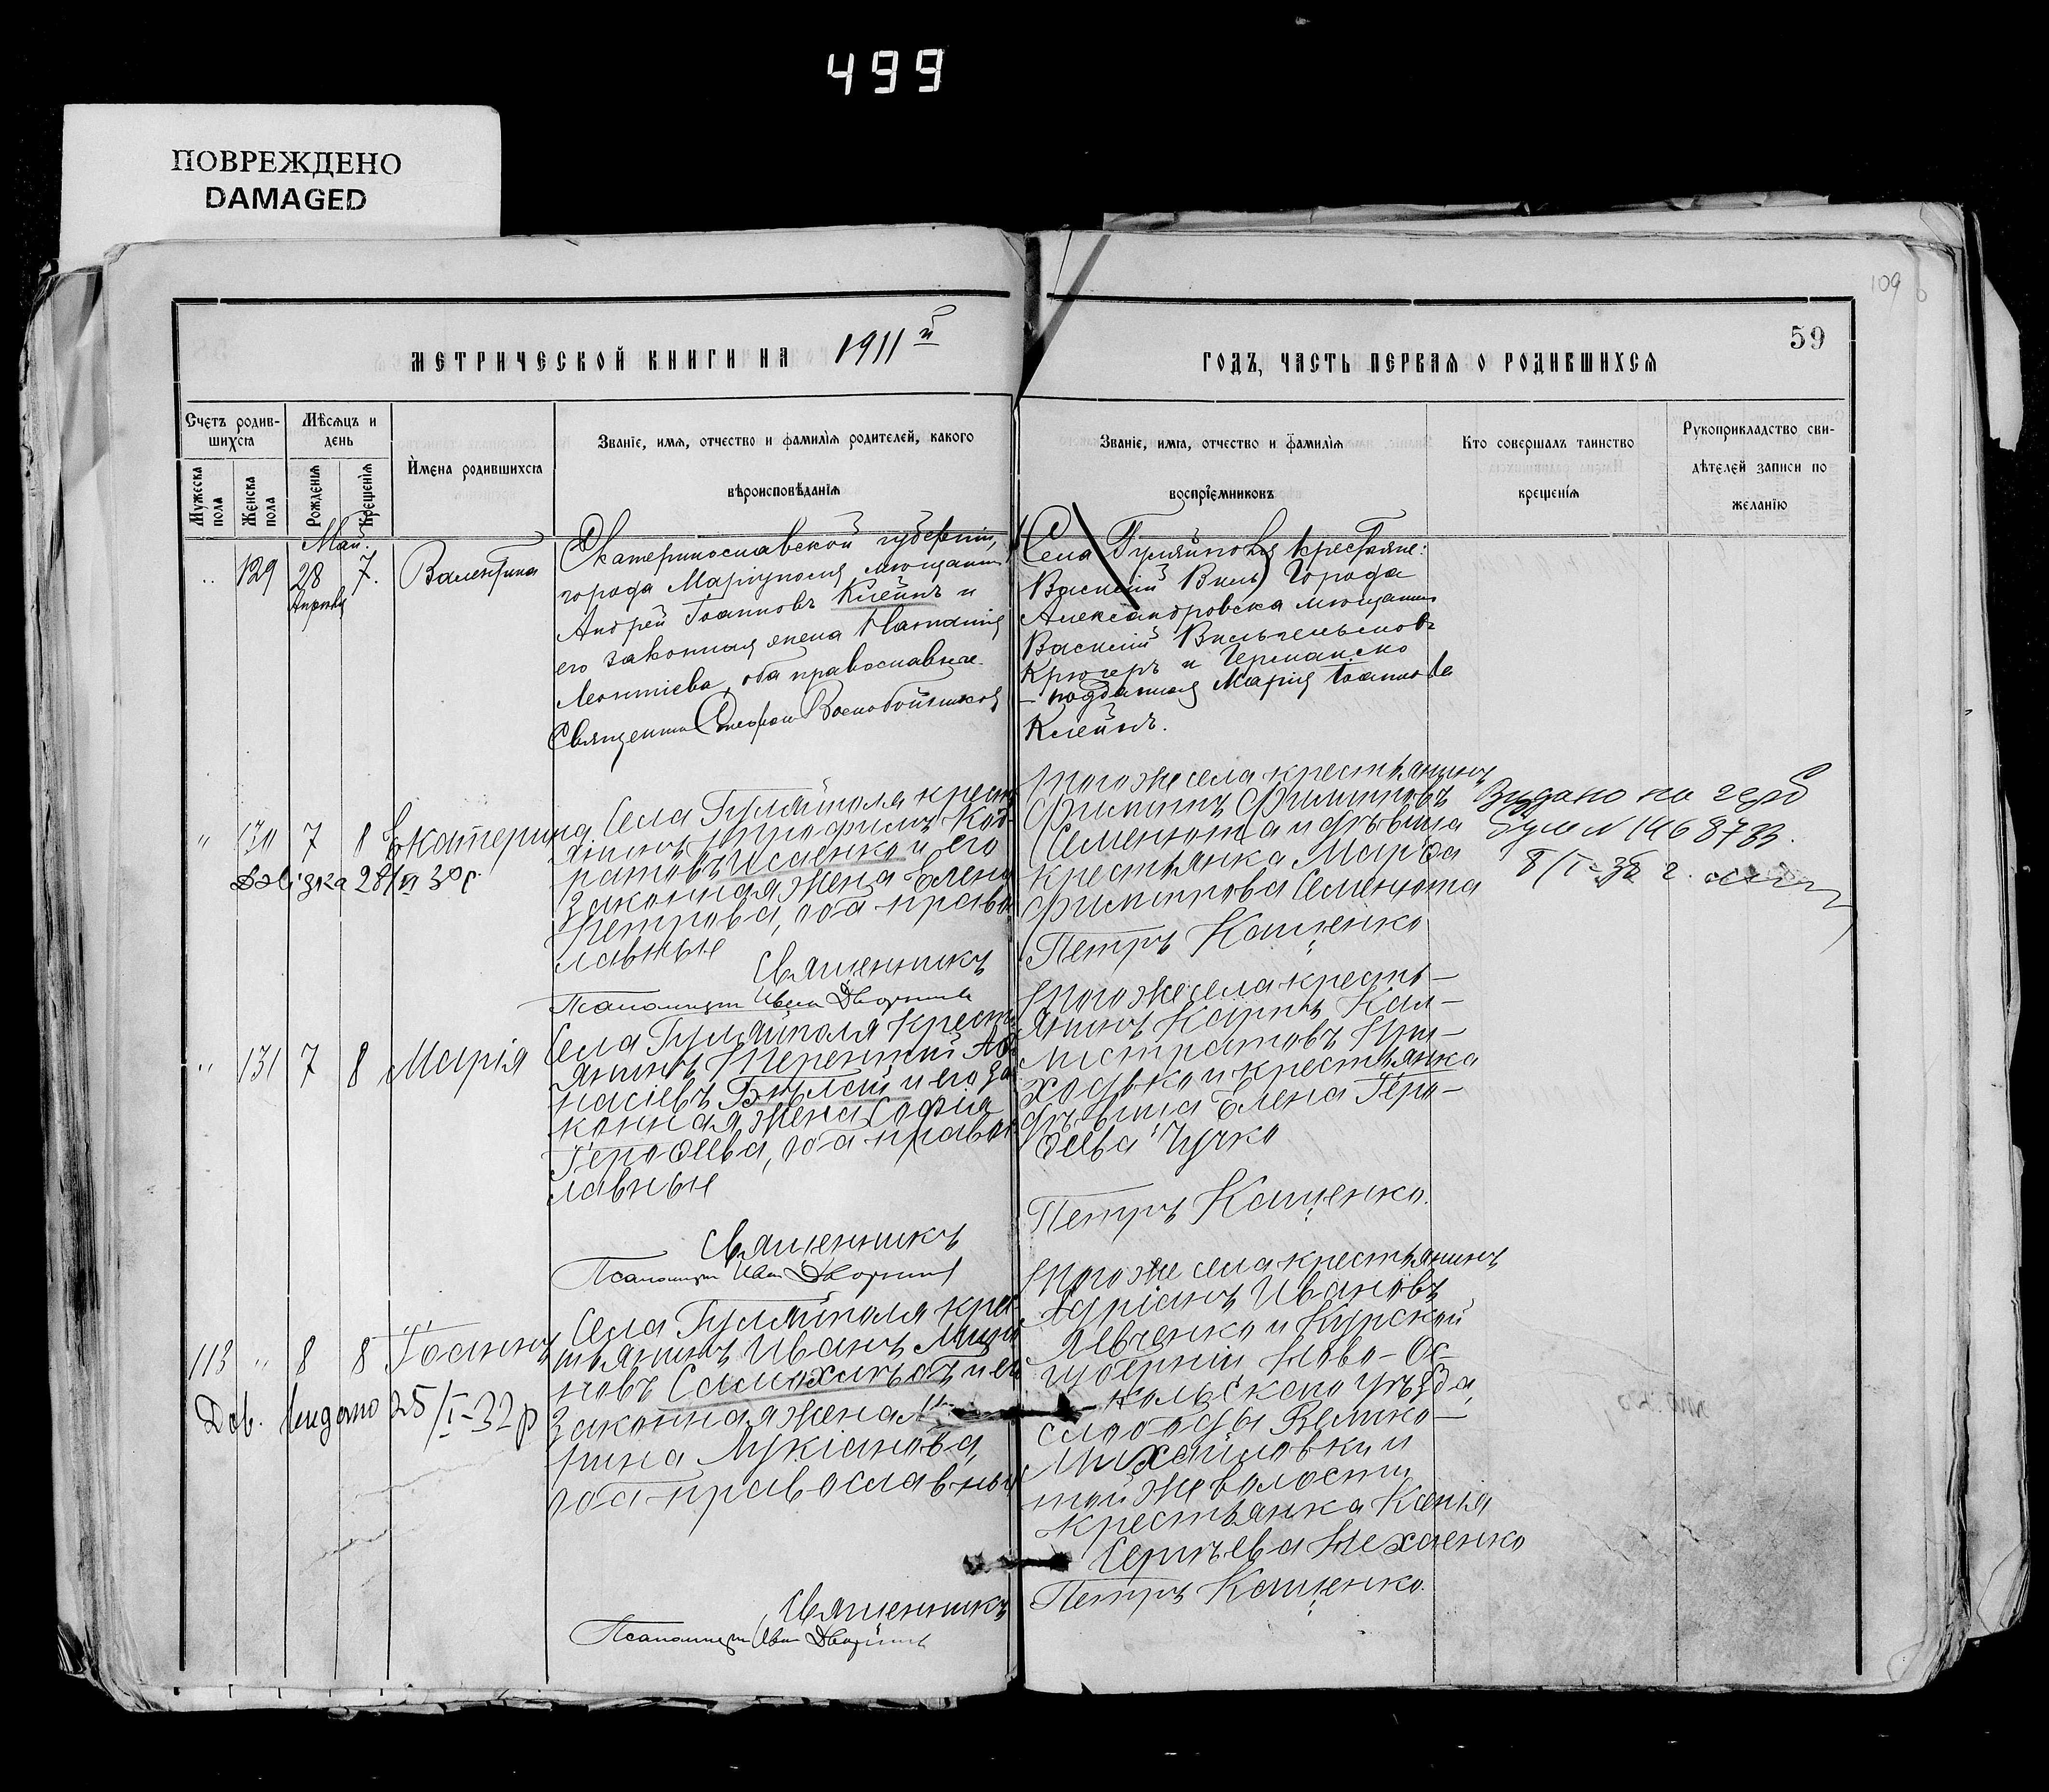 499
ПОВРЕЖДЕНО
DAMAGED
109
59
МЕТРИЧЕСКОЙ КНИГИ НА 1911й
ГОДЪ, ЧАСТЬ ПЕРВАЯ О РОДИВШИХСЯ
Счетъ родив-
шихся
Мужеска пола
Женска пола
Мѣсяцъ и
день
Рожденія
Крещенія
Имена родившихся
Званіе, имя, отчество и фамилія родителей, какого
вѣроисповѣданія
Званіе, имя, отчество и фамилія
воспріемниковъ
Кто совершалъ таинство
крещенія
Рукоприкладство сви-
дѣтелей записи по
желанію
Май.
" 129 28 7. Валентина
Апрѣля
Екатеринославской губерніи,
города Маріуполя мѣщанинъ
Андрей Іоанновъ Клейнъ и
его законная жена Наталія
Леонтіева, оба православные.
Священникъ Стефанъ Воскобойниковъ
Села Гуляйполя крестьяне:
Василій Виль) Города
Александровска мѣщанинъ
Василій Вильгельмовъ
Крюгеръ и Германско
-подданная Марія Іоаннова
Клейнъ.
" 130 7 8 Екатерина
28/VI 30 р.
Села Гуляйполя крест
янинъ Трофимъ Код-
ратовъ Исаенко и его
законная жена Елена
Петрова, оба правос
лавные
Священникъ
Псаломщикъ Иванъ Дворник
Того же села крестьянинъ
Филиппъ Филипповъ
Семенюта и дѣвица
крестьянка Марѳа
Филиппова Семенюта
Петръ Кащенко
Видано на герб
N 146873
8/I-38 г.
" 131 7 8 Марія
Села Гуляйполя крест
янинъ Терентій Аѳа
насіевъ Бѣлай и его за
конная жена Софія
Героѳеева, оба правос
лавные
Священникъ
Псаломщикъ Иванъ Дворник
Того же села кресть-
янинъ Карпъ Кал-
листратовъ При-
ходько и крестьянка
дѣвица Елена Геро-
ѳеева Чучко
Петръ Кащенко.
113 " 8 8 Іоаннъ
Дов. видано 25/I-32 р
Села Гуляйполя крес
тьянинъ Иванъ
новъ Самохитъ и его
законная жена
рина Лукіанова,
оба православные
Священникъ
Псаломщикъ Иванъ Дворник
Того же села крестьянинъ
Адріанъ Ивановъ
Левченко и Курской
губерніи Ново-Ос-
кольскаго уѣзда,
слободы Велико-
Михайловки и
той же волости
крестьянка Ксенія
Сергѣева Нехаенко
Петръ Кащенко.